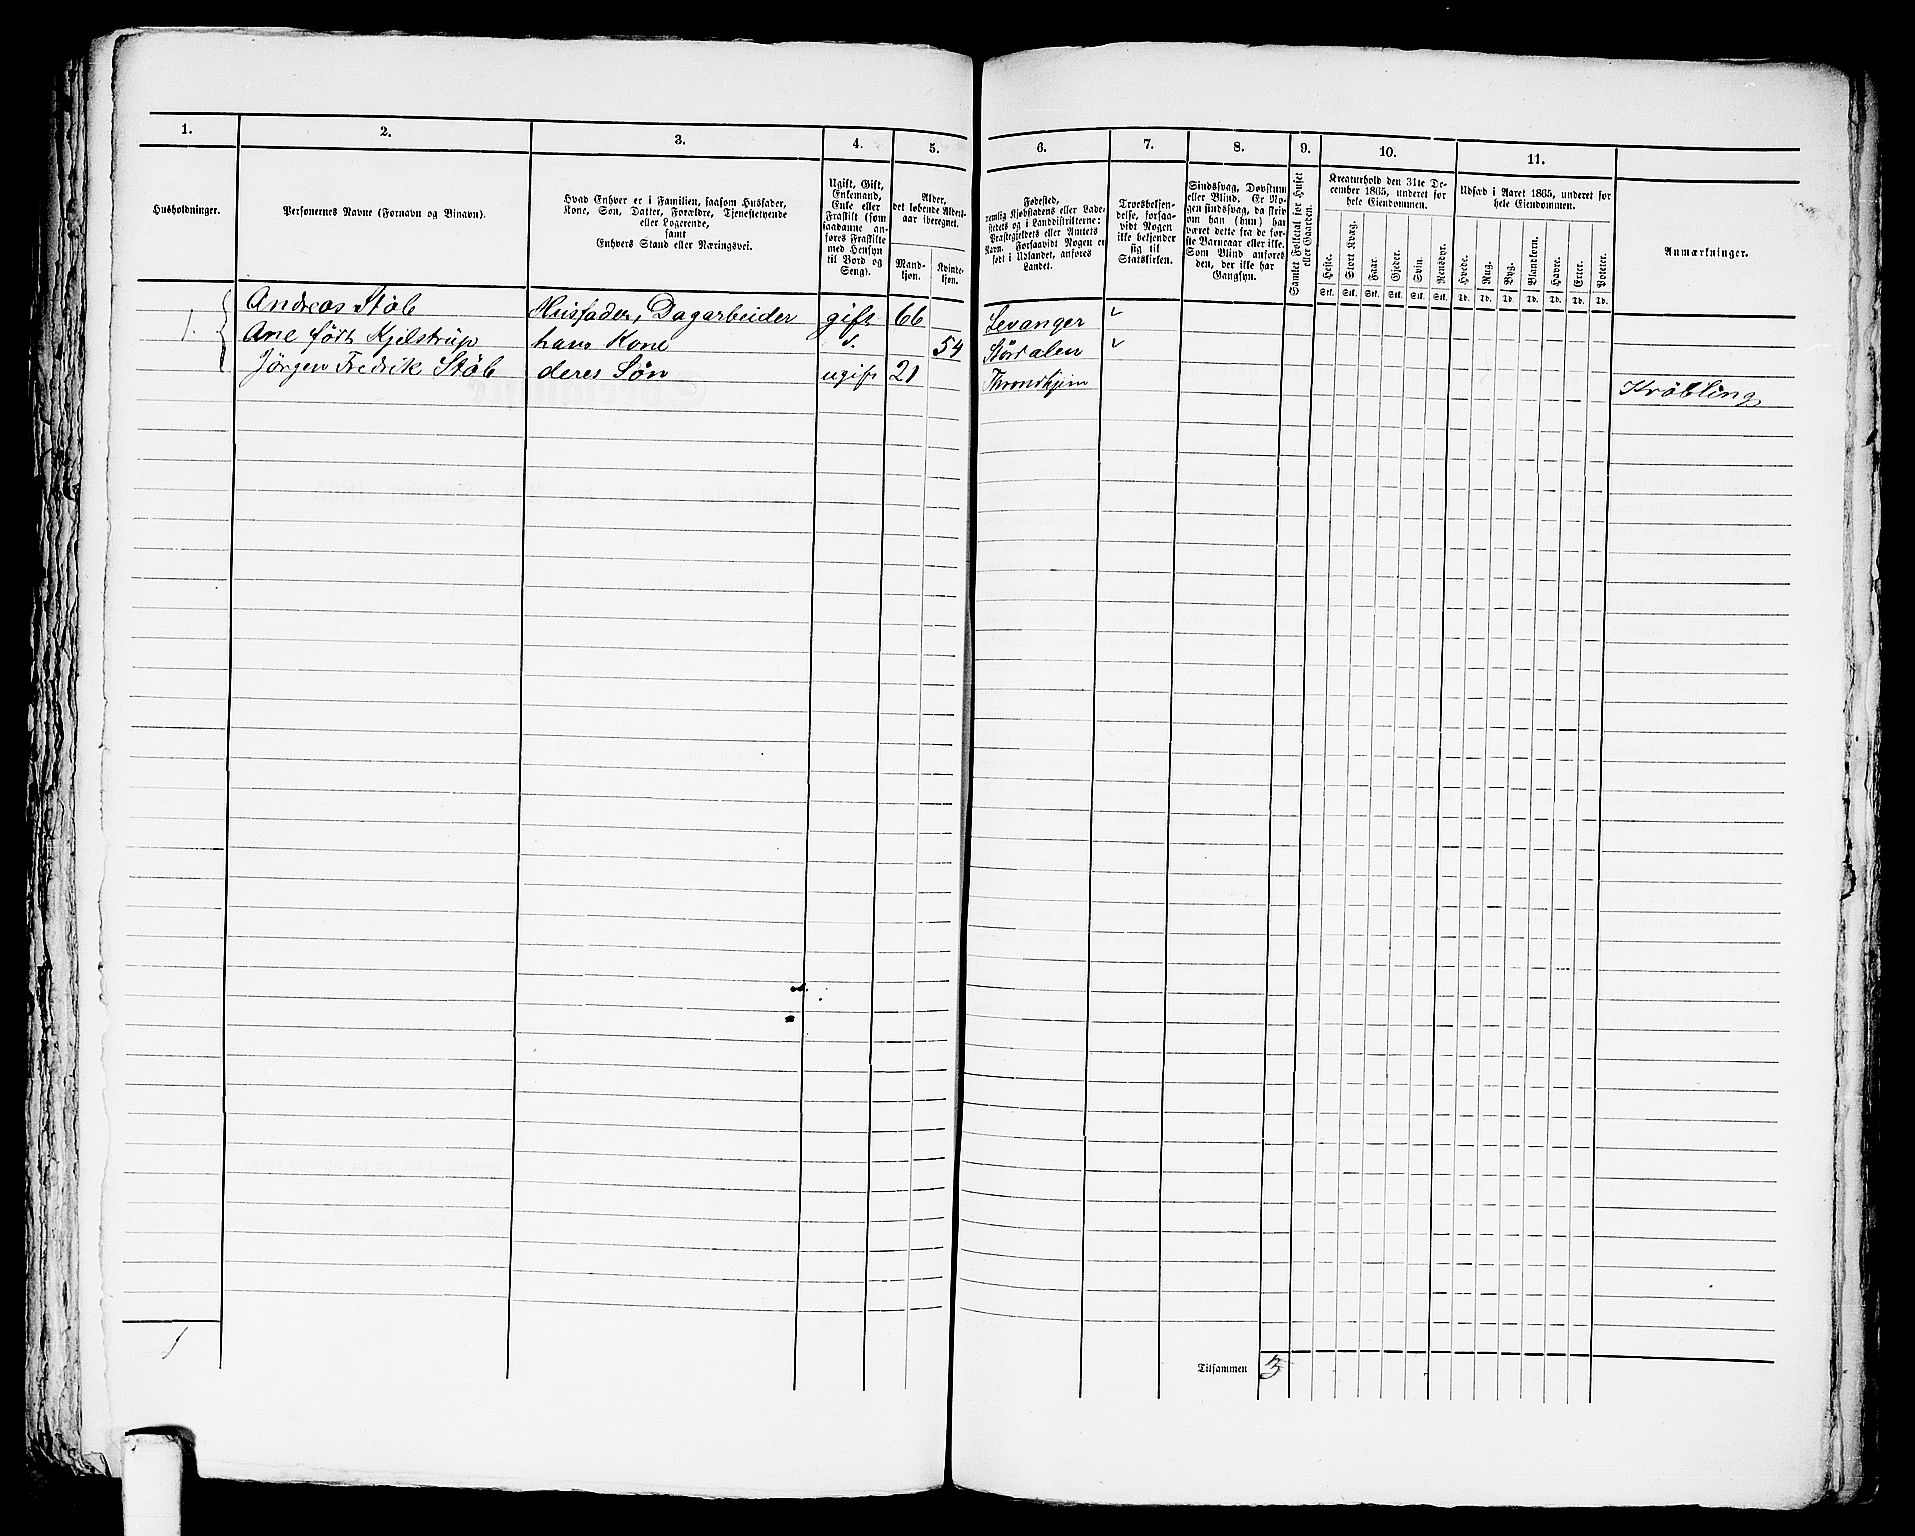 1. 2. 3. 4. 5. 6. 7. 8. 9. 10. 11.
Husholdninger.
Personernes Navne (Fornavn og Binavn).
Hvad Enhver er i Familien, saasom Husfader,
Kone, Søn, Datter, Forældre, Tjenestetyende
eller Logerende,
samt
Enhvers Stand eller Næringsvei.
Ugift, Gift,
Enkemand,
Enke eller
Fraskilt (som
saadanne an-
føres Fraskilte
med Hensyn
til Bord og
Seng).
Alder,
det løbende Alders-
aar iberegnet.
Mand-
kjøn.
Kvinde-
kjøn.
Fødested,
nemlig Kjøbstadens eller Lade-
stedets og i Landdistrikterne:
Præstegjeldets eller Amtets
Navn. Forsaavidt Nogen er
født i Udlandet, anføres
Landet.
Troesbekjen-
delse, forsaa-
vidt Nogen
ikke bekjender
sig til
Statskirken.
Sindssvag, Døvstum
eller Blind. Er No-
gen sindssvag, da skriv
om han (hun) har
været dette fra de før-
ste Barneaar eller ikke.
Som Blind anføres
den, der ikke har
Gangsyn.
Samlet Folketal for Huset
eller Gaarden.
Kreaturhold den 31te De-
cember 1865, underet for
hele Eiendommen.
Heste.
Stort Kvæg.
Faar.
Gjeder.
Svin.
Rensdyr.
Stk. Stk. Stk. Stk. Stk. Stk.
Udsæd i Aaret 1865, underet for
hele Eiendommen.
Hvede.
Rug.
Byg.
Blandkorn.
Havre.
Erter.
Poteter.
Td. Td. Td. Td. Td. Td. Td.
Anmærkninger.
1. Andreas Støb Husfader, Dagarbeider gift 66 Levanger
Ane født Kjelstrup hans Kone d. 54 Størdalen
Jörgen Fredrik Støb deres Søn ugift 21 Throndhjem Krøbling
1
Tilsammen 3